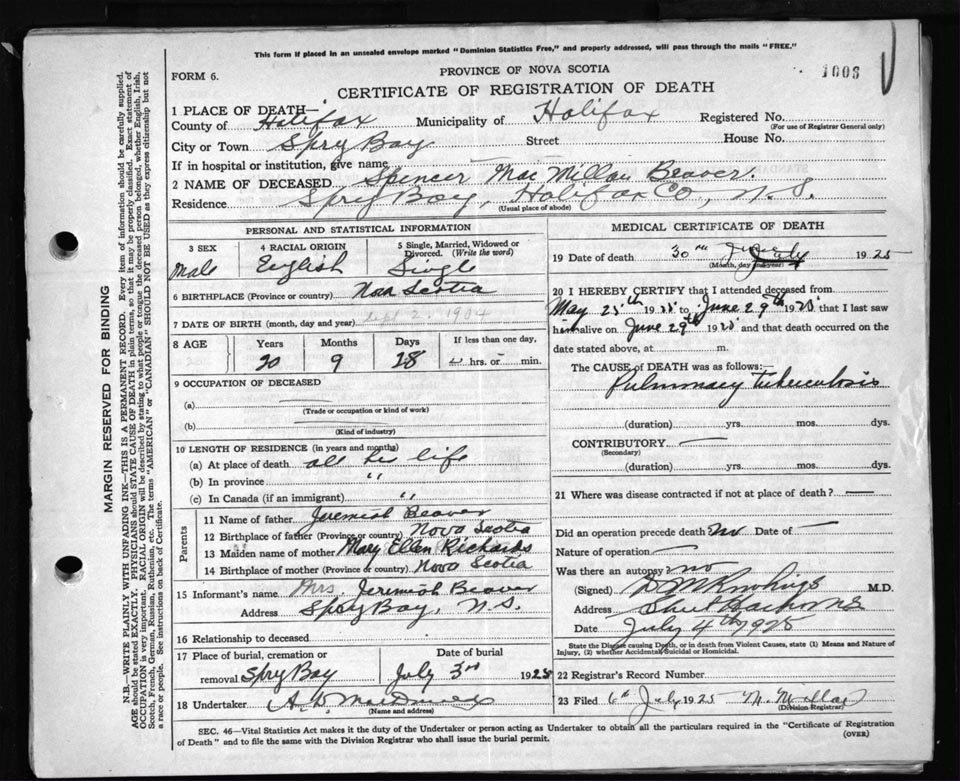 This form if placed in an unsealed envelope marked "Dominion Statistics Free," and properly addressed, will pass through the mails "FREE."
FORM 6.
PROVINCE OF NOVA SCOTIA
1003
CERTIFICATE OF REGISTRATION OF DEATH
1 PLACE OF DEATH—
County of Halifax Municipality of Halifax Registered No.
(For use of Registrar General only)
City or Town Spry Bay Street House No.
If in hospital or institution, give name
2 NAME OF DECEASED Spencer MacMillan Beaver.
Residence Spry Bay, Halifax Co., N. S.
(Usual place of abode)
PERSONAL AND STATISTICAL INFORMATION
3 SEX Male
4 RACIAL ORIGIN English
5 Single, Married, Widowed or Divorced. (Write the word) Single
6 BIRTHPLACE (Province or country) Nova Scotia
7 DATE OF BIRTH (month, day and year) Sept 2. 1904
8 AGE Years Months Days If less than one day,
20 9 28 hrs. or min.
9 OCCUPATION OF DECEASED
(a)
(Trade or occupation or kind of work)
(b)
(Kind of industry)
10 LENGTH OF RESIDENCE (in years and months)
(a) At place of death all his life
(b) In province "
(c) In Canada (if an immigrant) "
Parents
11 Name of father Jeremiah Beaver
12 Birthplace of father (Province or country) Nova Scotia
13 Maiden name of mother Mary Ellen Richards
14 Birthplace of mother (Province or country) Nova Scotia
15 Informant's name Mrs. Jeremiah Beaver
Address Spry Bay, N.S.
16 Relationship to deceased
17 Place of burial, cremation or removal Spry Bay
Date of burial July 3rd 1925
18 Undertaker
(Name and address)
MEDICAL CERTIFICATE OF DEATH
19 Date of death 30th June July 1925
(Month, day and year)
20 I HEREBY CERTIFY that I attended deceased from
May 25th 1925 to June 29th 1925 that I last saw
him alive on June 29th 1925 and that death occurred on the
date stated above, at m.
The CAUSE of DEATH was as follows:—
Pulmonary tuberculosis
(duration) yrs. mos. dys.
CONTRIBUTORY —
(Secondary)
(duration) yrs. mos. dys.
21 Where was disease contracted if not at place of death? —
Did an operation precede death no Date of —
Nature of operation —
Was there an autopsy? no
(Signed) M.D.
Address N.S.
Date July 4th 1925
State the Disease causing Death, or in death from Violent Causes, state (1) Means and Nature of
Injury, (2) whether Accidental, Suicidal or Homicidal.
22 Registrar's Record Number
23 Filed 6th July 1925 M. Millar
(Division Registrar)
SEC. 46—Vital Statistics Act makes it the duty of the Undertaker or person acting as Undertaker to obtain all the particulars required in the "Certificate of Registration
of Death" and to file the same with the Division Registrar who shall issue the burial permit.
(OVER)
MARGIN RESERVED FOR BINDING
N.B.—WRITE PLAINLY WITH UNFADING INK—THIS IS A PERMANENT RECORD. Every item of information should be carefully supplied.
AGE should be stated EXACTLY. PHYSICIANS should STATE CAUSE OF DEATH in plain terms, so that it may be properly classified. Exact statement of
OCCUPATION is very important. RACIAL ORIGIN will be described by stating to what people or tongue the deceased person belonged, whether English, Irish,
Scotch, French, German, Russian, Ruthenian, etc. The terms "AMERICAN" or "CANADIAN" SHOULD NOT BE USED as they express citizenship but not
a race or people. See instructions on back of Certificate.